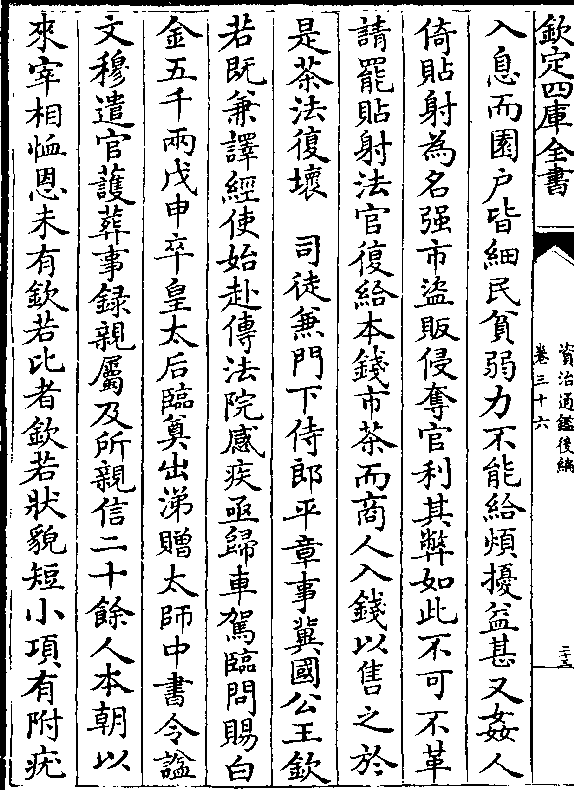 欽定四庫全書
資治通鑑後編
卷三十六
二十三
入息而園户皆細民貧弱力不能給煩擾益甚又姦人
倚貼射為名强市盜販侵奪官利其弊如此不可不革
請罷貼射法官復給本錢市茶而商人入錢以售之於
是茶法復壞　司徒兼門下侍郎平章事冀國公王欽
若既兼譯經使始赴傳法院感疾亟歸車駕臨問賜白
金五千兩戊申卒皇太后臨奠出涕贈太師中書令諡
文穆遣官護葬事録親屬及所親信二十餘人本朝以
來宰相恤恩未有欽若比者欽若狀貌短小項有附疣